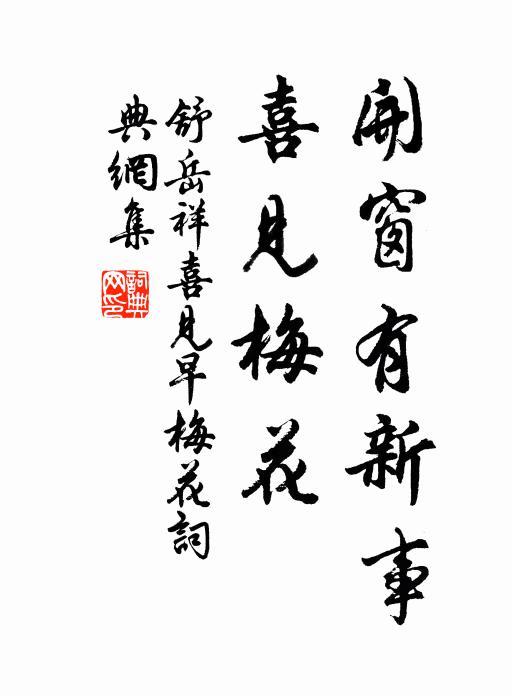 開窗有新事
喜見梅花
舒岳祥喜見早梅花詞
典網集
詞典网印